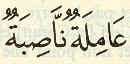 عَامِلَةٌ نَّاصِبَةٌ